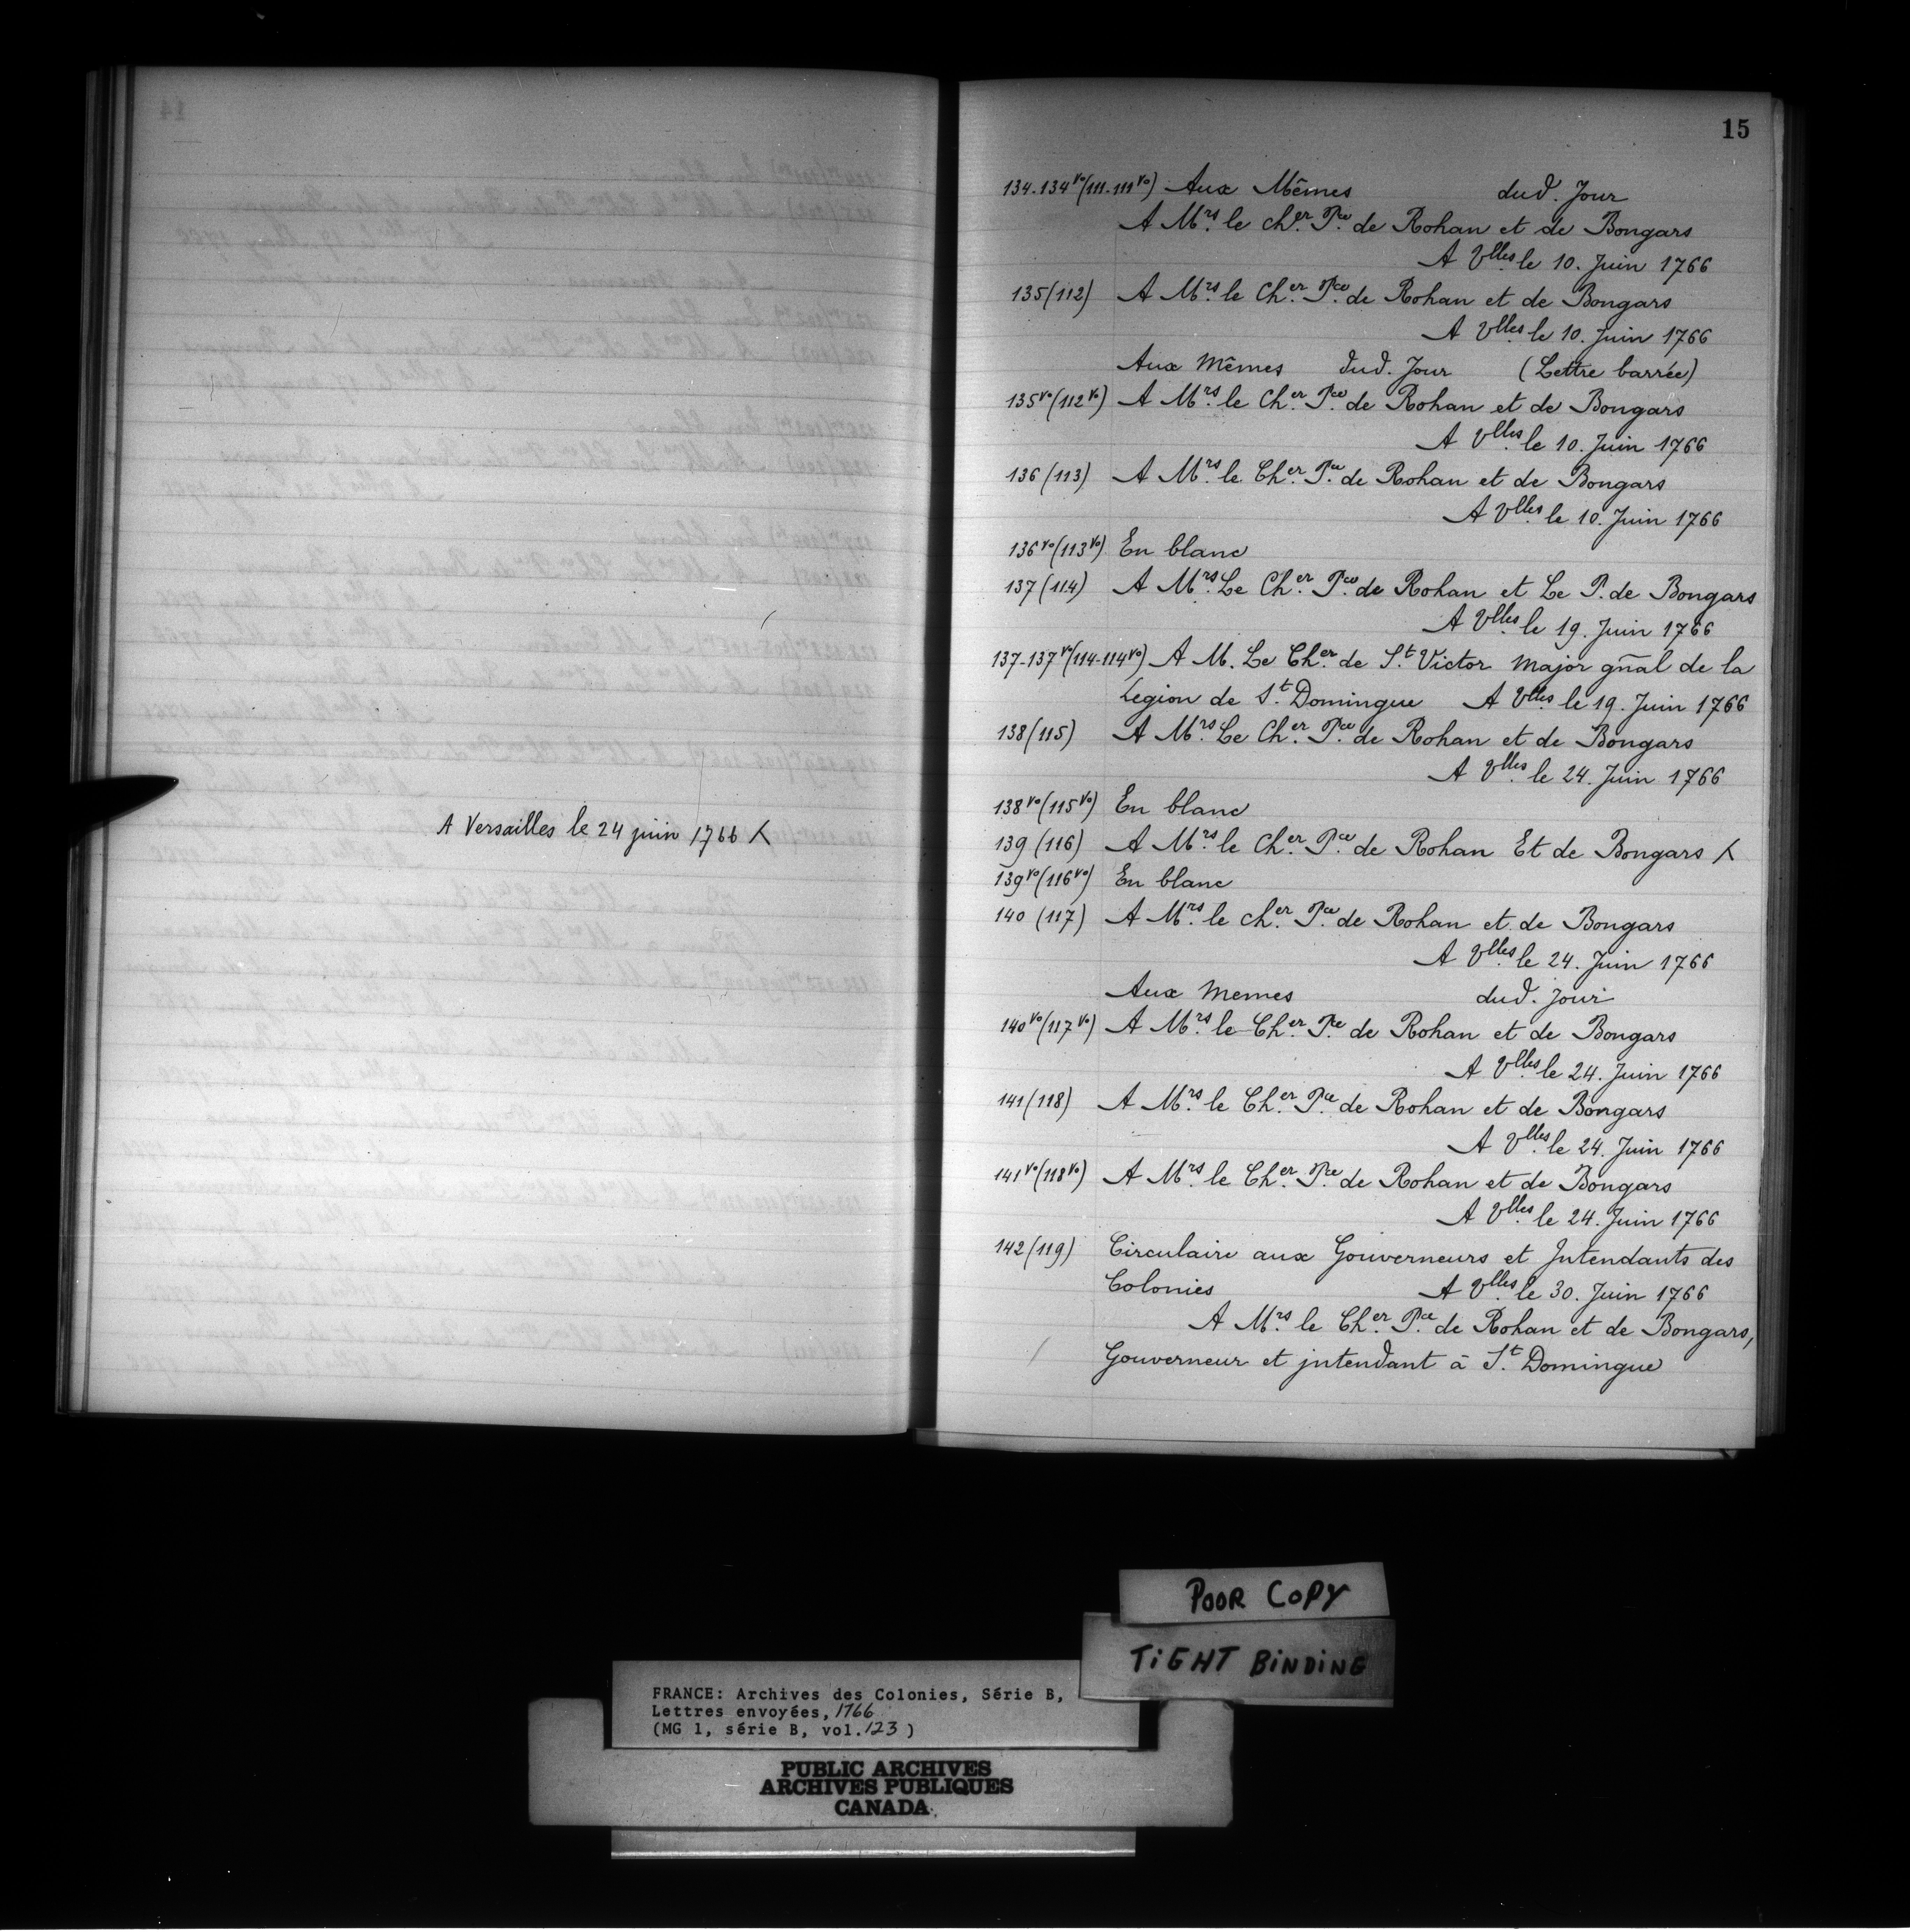 A Versailles le 24 juin 1766 X
15
134-134vo(111-111vo) Aux Mêmes dud. Jour
A Mrs. le cher. Pce. de Rohan et de Bongars
A Vlles. le 10. Juin 1766
135(112) A Mrs. le Cher. Pce. de Rohan et de Bongars
A Vlles. le 10. Juin 1766
Aux Mêmes dud. Jour (Lettre barrée)
135vo(112vo) A Mrs. le Cher. Pce. de Rohan et de Bongars
A Vlles. le 10. Juin 1766
136(113) A Mrs. le Cher. Pce. de Rohan et de Bongars
A Vlles. le 10. Juin 1766
136vo(113vo) En blanc
137(114) A Mrs. Le Cher. Pce. de Rohan et Le P. de Bongars
A Vlles. le 19. Juin 1766
137-137vo(114-114vo) A M. Le Cher. de St. Victor Major gñal de la
Legion de St. Domingue A Vlles. le 19. Juin 1766
138(115) A Mrs. Le Cher. Pce. de Rohan et de Bongars
A Vlles. le 24. Juin 1766
138vo(115vo) En blanc
139 (116) A Mrs. le Cher. Pce. de Rohan Et de Bongars X
139vo(116vo) En blanc
140 (117) A Mrs. le cher. Pce. de Rohan et de Bongars
A Vlles. le 24. Juin 1766
Aux Memes dud. Jour
140vo(117vo) A Mrs. le Cher. Pce. de Rohan et de Bongars
A Vlles. le 24. Juin 1766
141(118) A Mrs. le Cher. Pce. de Rohan et de Bongars
A Vlles. le 24. Juin 1766
141vo(118vo) A Mrs. le Cher. Pce. de Rohan et de Bongars
A Vlles. le 24. Juin 1766
142(119) Circulaire aux Gouverneurs et Intendants des
Colonies A Vlles. le 30. Juin 1766
A Mrs. le Cher. Pce. de Rohan et de Bongars,
Gouverneur et intendant à St. Domingue
POOR COPY
TIGHT BINDING
FRANCE: Archives des Colonies, Série B,
Lettres envoyées, 1766
(MG 1, série B, vol. 123)
PUBLIC ARCHIVES
ARCHIVES PUBLIQUES
CANADA